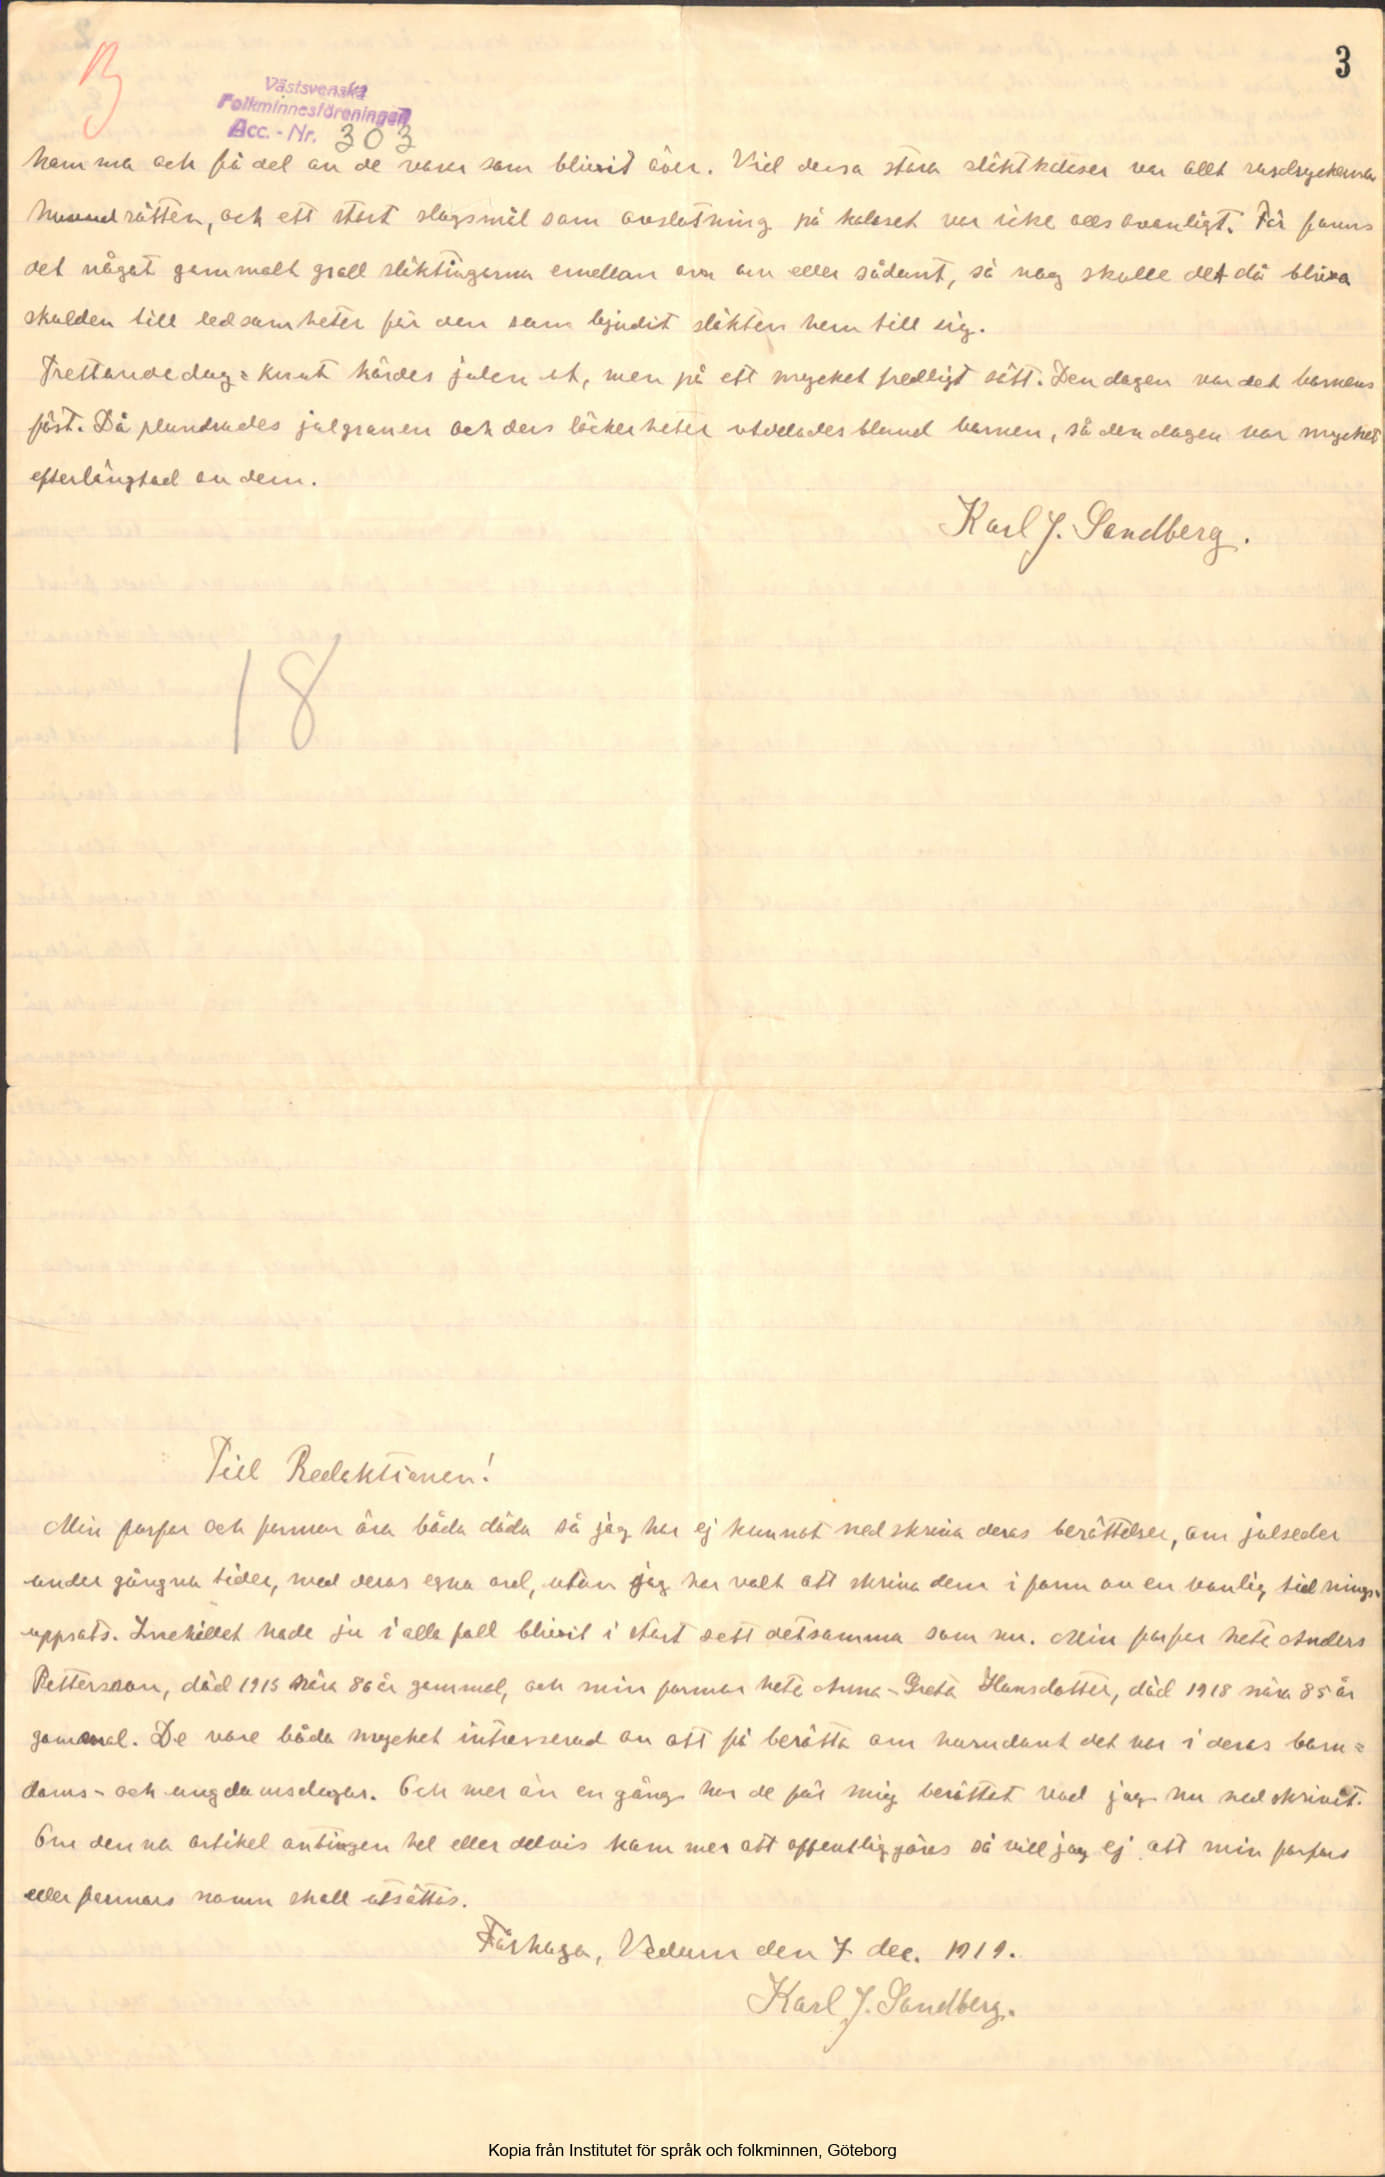 3
B
Västsvenska
Folkminnesföreningen
Acc. - Nr. 303
komma och få del av de varor som blivit över. Vid dessa stora släktkalaser var allt rusdryckerna
huvudrätten, och ett stort slagsmål som avslutning på kalaset var icke alls ovanligt. För fanns
det något gammalt groll släktingarna emellan arv om eller sådant, så nog skulle det då bliva
skulden till ledsamheter för den som bjudit släkten hem till sig.
Trettondedag=Knut kördes julen ut, men på ett mycket fredligt sätt. Den dagen var det barnens
fäst. Då plundrades julgranen och dess läckerheter utdelades bland barnen, så den dagen var mycket
efterlängtad av dem.
Karl J. Sandberg.
18
Till Redaktionen!
Min farfar och farmor äro båda döda så jag har ej kunnat nedskriva deras berättelser, om julseder
under gångna tider, med deras egna ord, utan jag har valt att skriva dem i form av en vanlig tidnings-
uppsats. Innehållet hade ju i alla fall blivit i stort sett detsamma som nu. Min farfar hete Anders
Pettersson, död 1915 nära 86 år gammal, och min farmor hete Anna-Greta Hansdotter, död 1918 nära 85 år
gammal. De voro båda mycket intresserad av att få berätta om hurudant det var i deras barn=
doms- och ungdomsdagar. Och mer än en gång har de för mig berättat vad jag nu nedskrivit.
Om denna artikel antingen hel eller delvis kommer att offentliggöras så vill jag ej att min farfars
eller farmors namn skall utsättas.
Fårhaga, Vedum den 7 dec. 1919.
Karl J. Sandberg.
Kopia från Institutet för språk och folkminnen, Göteborg